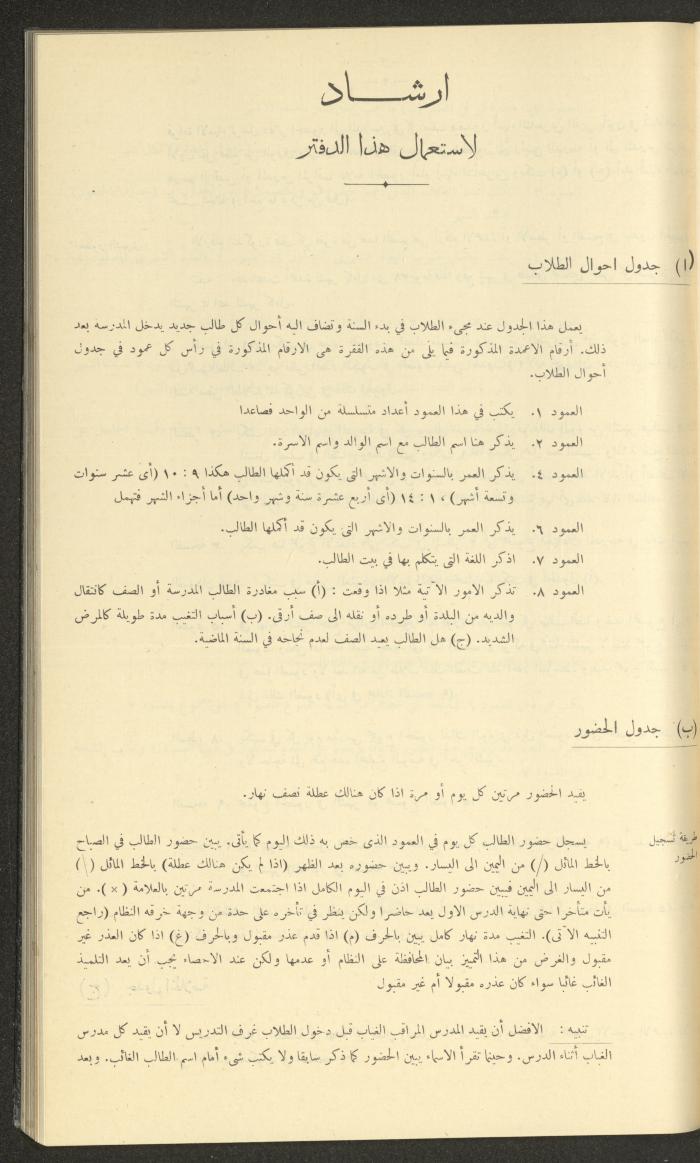 ارشاد
لاستعمال هذا الدفتر
(ا) جدول احوال الطلاب
يعمل هذا الجدول عند مجىء الطلاب في بدء السنة وتضاف اليه أحوال كل طالب جديد يدخل المدرسه بعد
ذلك. أرقام الاعمدة المذكورة فيما يلى من هذه الفقرة هى الارقام المذكورة في رأس كل عمود في جدول
أحوال الطلاب.
العمود ١. يكتب في هذا العمود أعداد متسلسلة من الواحد فصاعدا
العمود ٢. يذكر هنا اسم الطالب مع اسم الوالد واسم الاسرة.
العمود ٤. يذكر العمر بالسنوات والاشهر التى يكون قد أكملها الطالب هكذا ٩ : ١٠ (أى عشر سنوات
وتسعة أشهر) ، ١ : ١٤ (أى أربع عشرة سنة وشهر واحد) أما أجزاء الشهر فتهمل
العمود ٦. يذكر العمر بالسنوات والاشهر التى يكون قد أكملها الطالب.
العمود ٧. اذكر اللغة التى يتكلم بها في بيت الطالب.
العمود ٨. تذكر الامور الآتية مثلا اذا وقعت : (أ) سبب مغادرة الطالب المدرسة أو الصف كانتقال
والديه من البلدة أو طرده أو نقله الى صف أرقى. (ب) أسباب التغيب مدة طويلة كالمرض
الشديد. (ج) هل الطالب يعيد الصف لعدم نجاحه في السنة الماضية.
(ب) جدول الحضور
يقيد الحضور مرتين كل يوم أو مرة اذا كان هنالك عطلة نصف نهار.
طريقة تسجيل
الحضور
يسجل حضور الطالب كل يوم في العمود الذى خص به ذلك اليوم كما يأتى. يبين حضور الطالب في الصباح
بالخط المائل (/) من اليمين الى اليسار. ويبين حضوره بعد الظهر (اذا لم يكن هنالك عطلة) بالخط المائل (\)
من اليسار الى اليمين فيبين حضور الطالب اذن في اليوم الكامل اذا اجتمعت المدرسة مرتين بالعلامة (×). من
يأت متأخرا حتى نهاية الدرس الاول يعد حاضرا ولكن ينظر في تأخره على حدة من وجهة خرقه النظام (راجع
التنبيه الآتى). التغيب مدة نهار كامل يبين بالحرف (م) اذا قدم عذر مقبول وبالحرف (غ) اذا كان العذر غير
مقبول والغرض من هذا التمييز بيان المحافظة على النظام أو عدمها ولكن عند الاحصاء يجب أن يعد التلميذ
الغائب غائبا سواء كان عذره مقبولا أم غير مقبول
تنبيه : الافضل أن يقيد المدرس المراقب الغياب قبل دخول الطلاب غرف التدريس لا أن يقيد كل مدرس
الغياب أثناء الدرس. وحينما تقرأ الاسماء يبين الحضور كما ذكر سابقا ولا يكتب شىء أمام اسم الطالب الغائب. وبعد